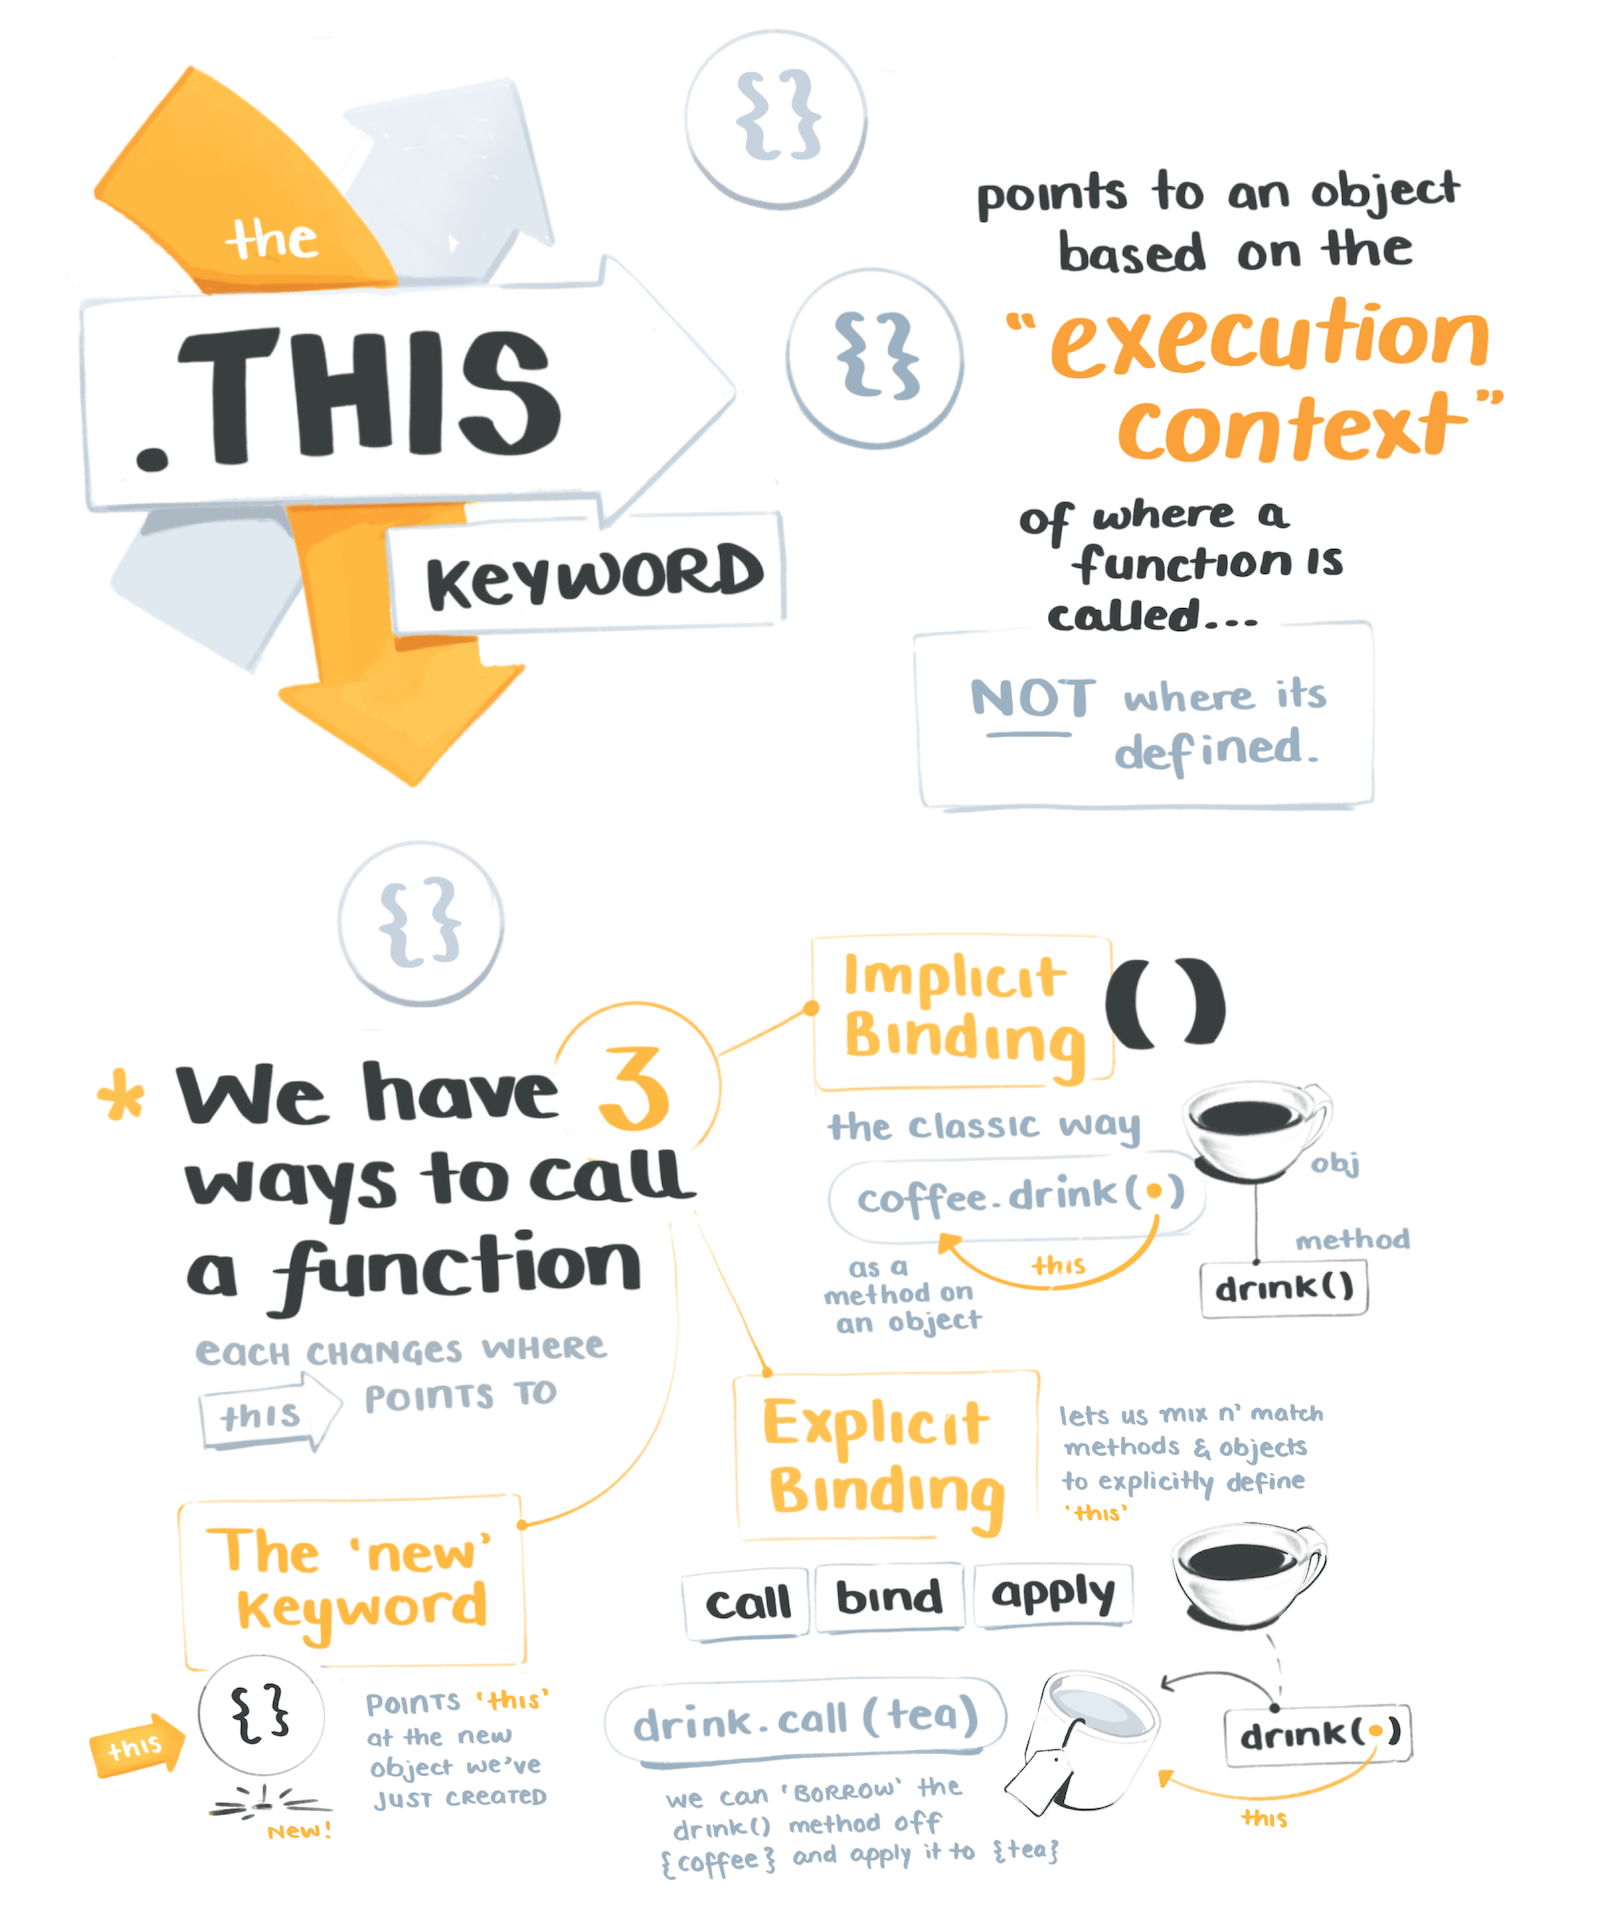 the
.THIS
KeyWORD
{}
{}
points to an object
based on the
"execution
context"
of where a
function is
called...
NOT where its
defined.
{}
* We have 3
ways to call
a function
each changes where
this points to
Implicit
Binding
()
the classic way
coffee.drink(•)
this
as a
method on
an object
obj
method
drink()
Explicit
Binding
lets us mix n' match
methods & objects
to explicitly define
'this'
call bind apply
drink.call(tea)
we can 'BORROW' the
drink() method off
{coffee} and apply it to {tea}
drink(•)
this
The 'new'
Keyword
this
{}
New!
points 'this'
at the new
object we've
just created